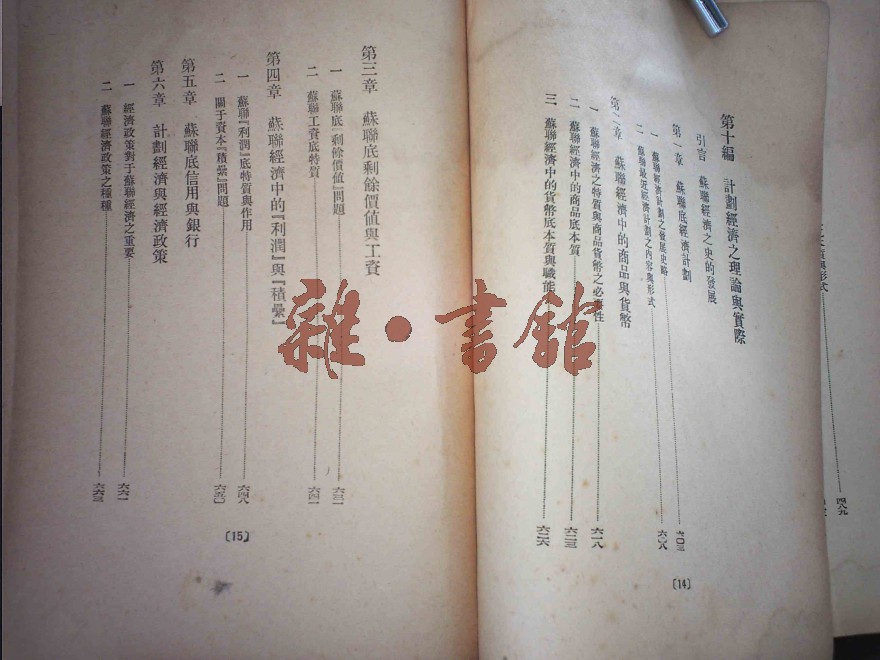 第十編　計劃經濟之理論與實際
引言　蘇聯經濟之史的發展
第一章　蘇聯底經濟計劃
一　蘇聯經濟計劃之發展史略 六〇三
二　蘇聯最近經濟計劃之內容與形式 六〇八
第二章　蘇聯經濟中的商品與貨幣
一　蘇聯經濟之特質與商品貨幣之必要性 六一八
二　蘇聯經濟中的商品底本質 六二三
三　蘇聯經濟中的貨幣底本質與職能 六二六
〔14〕
第三章　蘇聯底剩餘價值與工資
一　蘇聯底『剩餘價值』問題 六三一
二　蘇聯工資底特質 六四一
第四章　蘇聯經濟中的『利潤』與『積纍』
一　蘇聯『利潤』底特質與作用 六四八
二　關于資本『積纍』問題 六五〇
第五章　蘇聯底信用與銀行
第六章　計劃經濟與經濟政策
一　經濟政策對于蘇聯經濟之重要 六六一
二　蘇聯經濟政策之種種 六六三
〔15〕
與形式
四八九
雜·書館